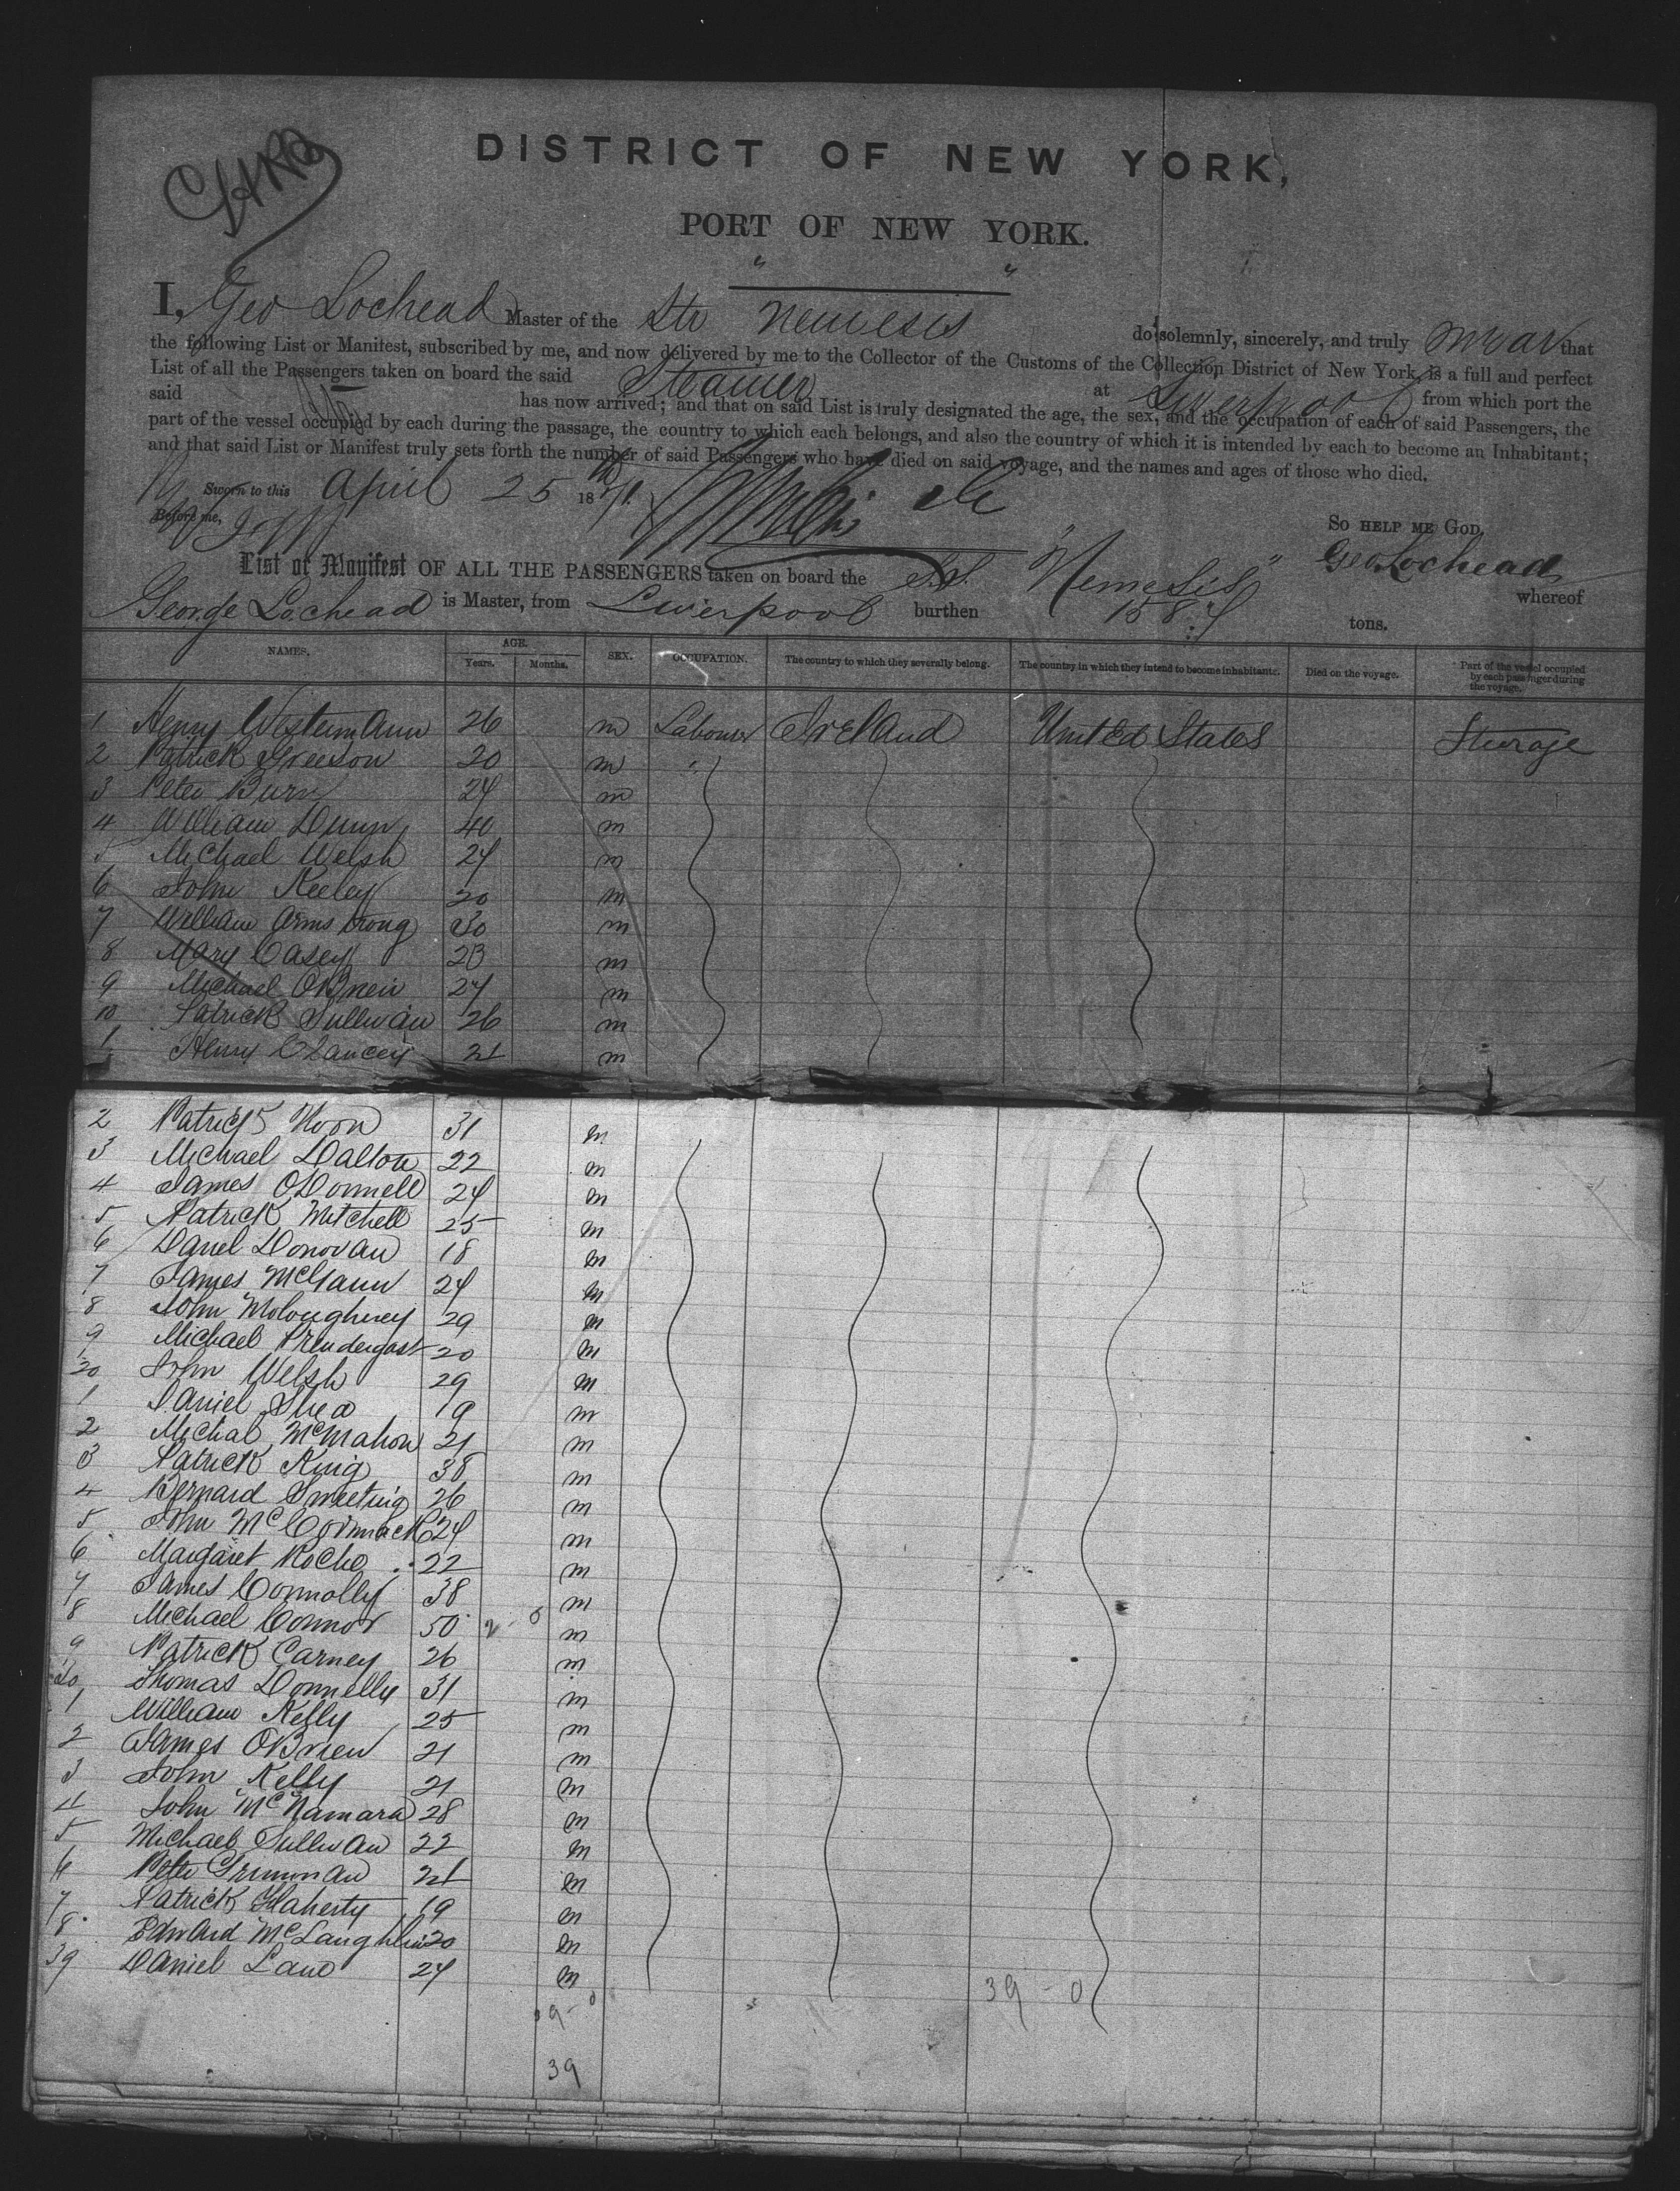 DISTRICT OF NEW YORK,
PORT OF NEW YORK.
" "
I, Geo Lochead Master of the Str Nemesis do solemnly, sincerely, and truly swear that
the following List or Manifest, subscribed by me, and now delivered by me to the Collector of the Customs of the Collection District of New York, is a full and perfect
List of all the Passengers taken on board the said Steamer at Liverpool from which port the
said has now arrived; and that on said List is truly designated the age, the sex, and the occupation of each of said Passengers, the
part of the vessel occupied by each during the passage, the country to which each belongs, and also the country of which it is intended by each to become an Inhabitant;
and that said List or Manifest truly sets forth the number of said Passengers who have died on said voyage, and the names and ages of those who died.
Sworn to this April 25th 1871.
Before me,
So HELP ME GOD,
Geo Lochead
List or Manifest OF ALL THE PASSENGERS taken on board the S.S. "Nemesis" whereof
George Lochead is Master, from Liverpool burthen tons.
NAMES. AGE. Years. Months. SEX. OCCUPATION. The country to which they severally belong. The country in which they intend to become inhabitants. Died on the voyage. Part of the vessel occupied by each passenger during the voyage.
1 Henry Westermann 26 m Labourer Ireland United States Sturage
2 Patrick Greeson 20 m
3 Peter Burn 24 m
4 William Dunn 40 m
5 Michael Welsh 24 m
6 John Keeley 20 m
7 William Armstrong 30 m
8 Mary Casey 23 m
9 Michael OBrien 24 m
10 Patrick Sullivan 26 m
1 Henry Clancey 21 m
2 Patrick Noon 31 m
3 Michael Dalton 22 m
4 James ODonnell 24 m
5 Patrick Mitchell 25 m
6 Daniel Donovan 18 m
7 James McGann 24 m
8 John Moloughney 29 m
9 Michael Prendergast 20 m
20 John Welsh 29 m
1 Daniel Shea 19 m
2 Michal McMahon 21 m
3 Patrick King 38 m
4 Bernard Sweeting 26 m
5 John McCormack 24 m
6 Margaret Roche 22 m
7 James Connolly 38 m
8 Michael Connor 50 m
9 Patrick Carney 26 m
30 Thomas Donnelly 31 m
1 William Kelly 25 m
2 James OBrien 21 m
3 John Kelly 21 m
4 John McNamara 28 m
5 Michael Sullivan 22 m
6 Peter 21 m
7 Patrick Flaherty 19 m
8 Edward McLaughlin 20 m
39 Daniel Lane 24 m
39 - 0
39 - 0
39